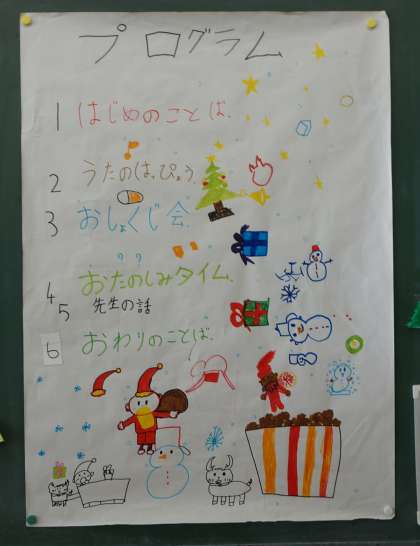 プログラム
1 はじめのことば
2 うたのはっぴょう
3 おしょくじ会
4 おたのしみタイム
5 先生の話
6 おわりのことば